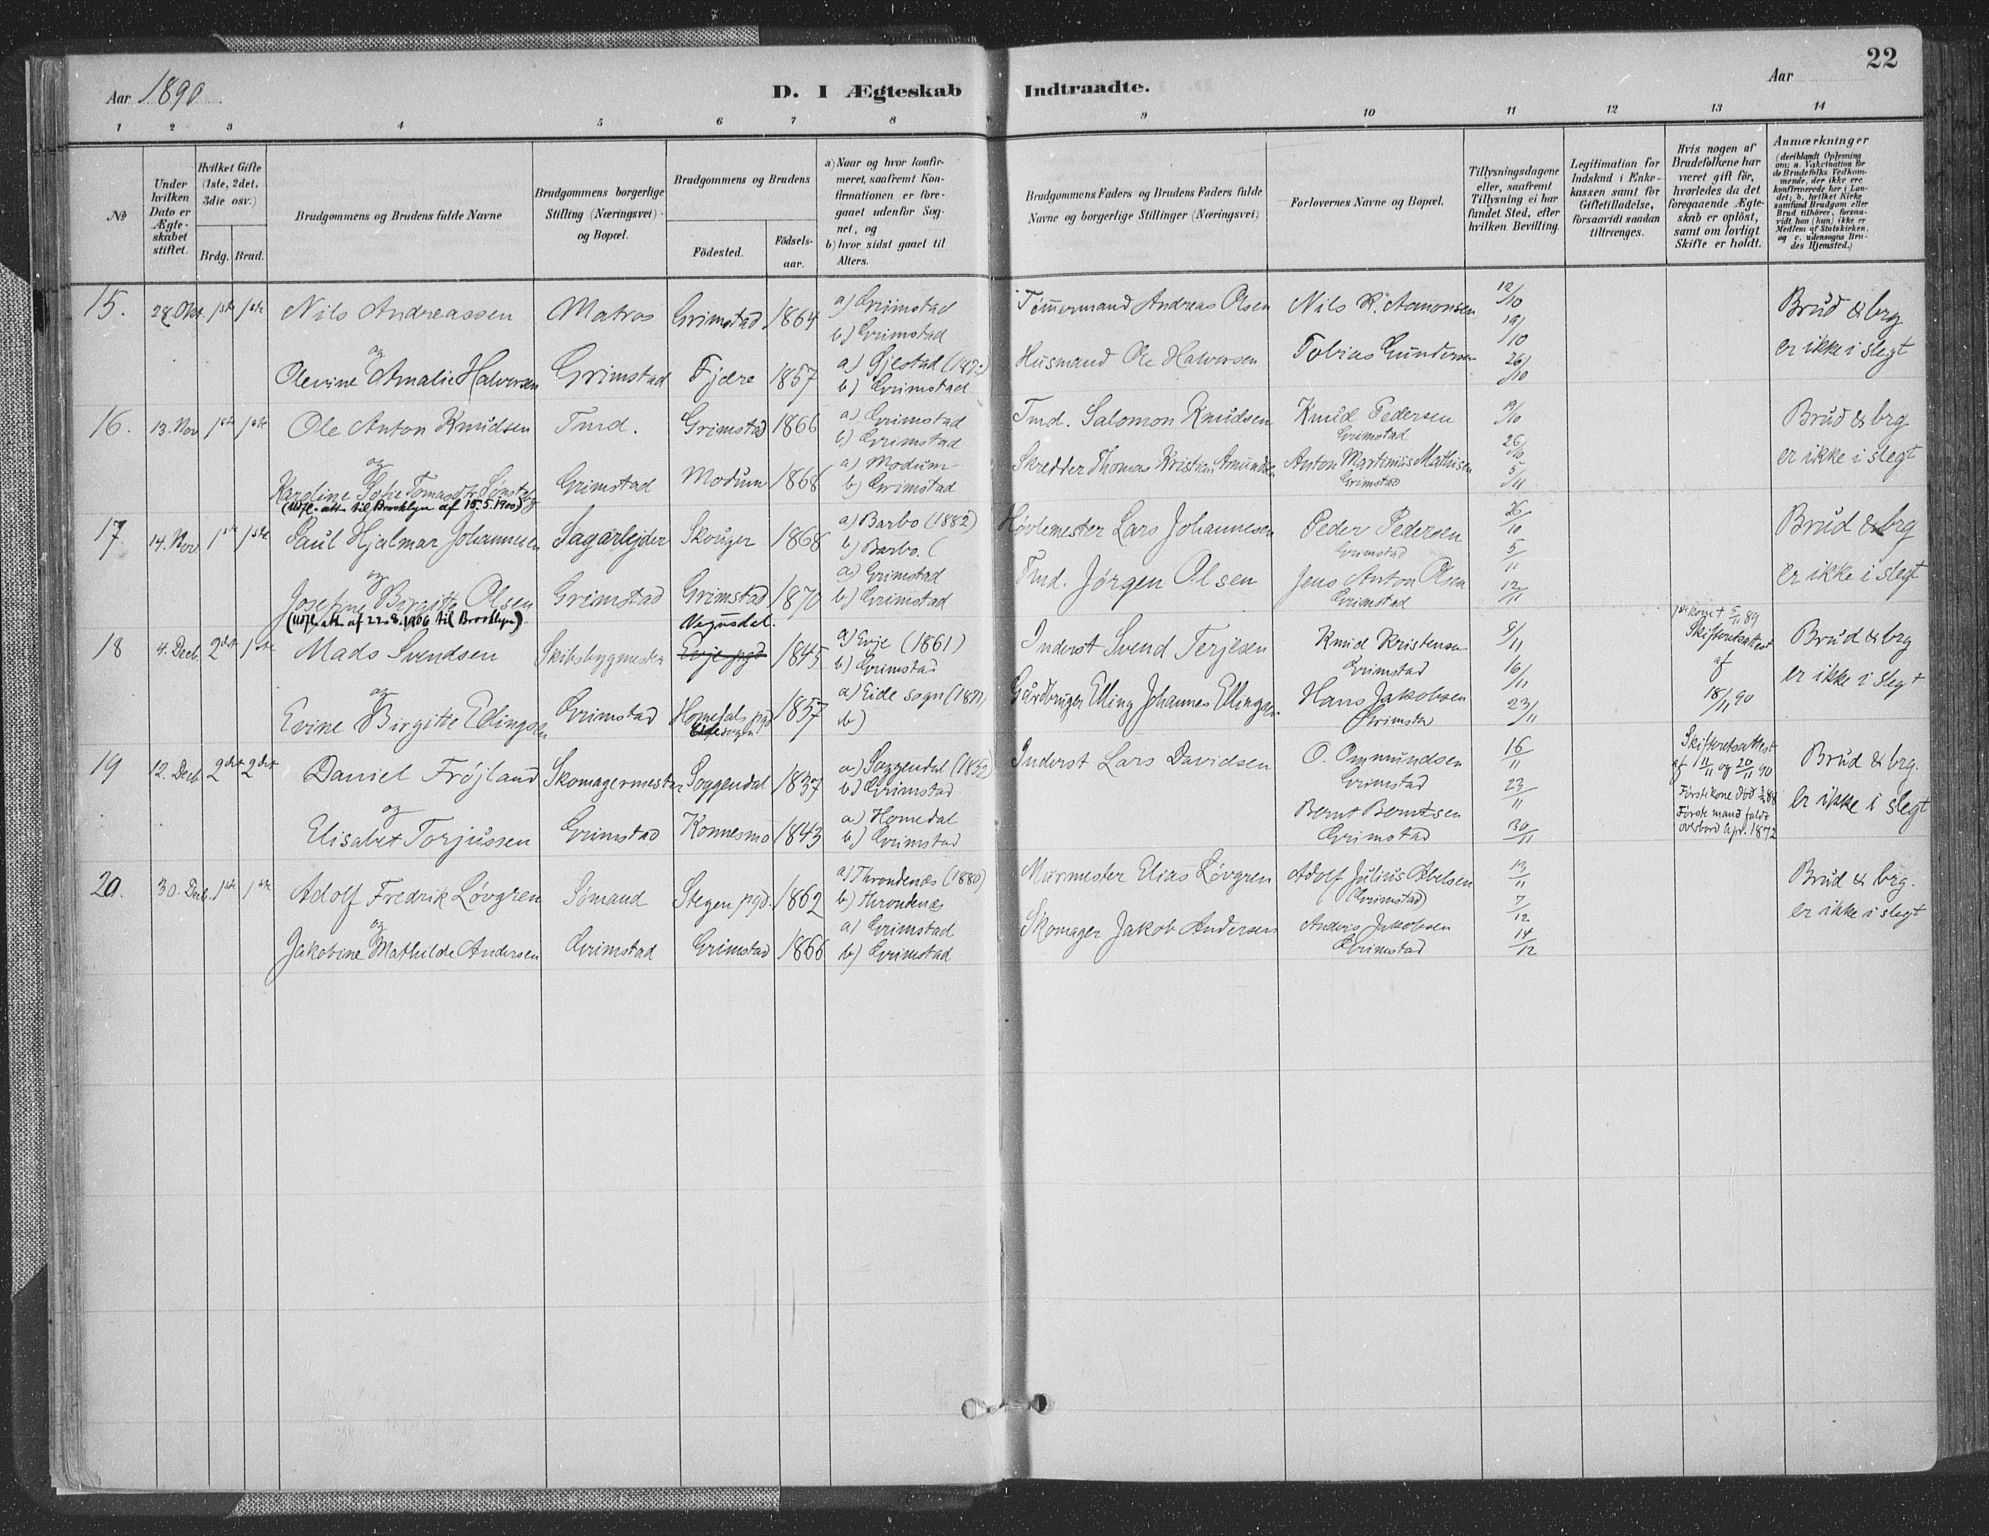 Aar 1890
D. I Ægteskab Indtraadte.
Aar
22
1 2 3 4 5 6 7 8 9 10 11 12 13 14
No
Under hvilken Dato er Ægteskabet stiftet.
Hvilket Gifte (1ste, 2det, 3die osv.)
Brdg. Brud.
Brudgommens og Brudens fulde Navne
Brudgommens borgerlige Stilling (Næringsvei) og Bopæl.
Brudgommens og Brudens
Födested.
Födsels-aar.
a) Naar og hvor konfirmeret, saafremt Konfirmationen er foregaaet udenför Sognet, og
b) hvor sidst gaaet til Alters.
Brudgommens Faders og Brudens Faders fulde Navne og borgerlige Stillinger (Næringsvei)
Forlovernes Navne og Bopæl.
Tillysningsdagene eller, saafremt Tillysning ei har fundet Sted, efter hvilken Bevilling.
Legitimation for Indskud i Enkekassen samt för Giftetilladelse, forsaavidt saadan tiltrænges.
Hvis nogen af Brudefolkene har været gift för, hvorledes da det foregaaende Ægteskab er oplöst, samt om lovligt Skifte er holdt.
Anmærkninger
(deriblandt Oplysning om: a. Vakcination för de Brudefolks Vedkommende, der ikke ere konfirmerede her i Landet; b. hvilket Kirkesamfund Brudgom eller Brud tilhörer, forsaavidt han (hun) ikke er Medlem af Statskirken, og c. udensogns Brudes Hjemsted.)
15. 28 Okt. 1ste 1ste Nils Andreassen Matros Grimstad 1864 a) Grimstad b) Grimstad Tømmermand Andreas Olsen Nils R. Aamonsen 12/10 19/10 Brud & brg
og
Olevine Amalie Halvorsen Grimstad Fjære 1857 a) Øjestad b) Grimstad Husmand Ole Halvorsen Tobias Gundersen 26/10 er ikke i slegt
16. 13. Nov 1ste 1ste Ole Anton Knudsen Tmd. Grimstad 1866 a) Grimstad b) Grimstad Tmd. Salomon Knudsen Knud Pedersen Grimstad 19/10 Brud & brg
og
Karoline Sofie Tomasdtr Grimstad Modum 1868 a) Modum b) Grimstad Skredder Thomas Kristian Amundsen Anton Martinius Mathisen Grimstad 26/10 5/11 er ikke i slegt
(Udfl. att. til Brooklyn af 15.5.1900)
17. 14. Nov 1ste 1ste Paul Hjalmar Johannesen Sagarbejder Skouger 1868 a) Barbo (1882) b) Barbo. ( Høvlemester Lars Johannesen Peder Pedersen Grimstad 26/10 5/11 Brud & brg
og
Josefine Birgitte Olsen Grimstad Grimstad 1870 a) Grimstad b) Grimstad Tmd. Jørgen Olsen Jens Anton Olsen Grimstad 12/11 er ikke i slegt
(Udfl. att. af 22.8.1906 til Brooklyn)
Vegusdal.
18 4. Dech 2det 1ste Mads Svendsen Skibsbygmester Evje pgd 1845 a) Evje (1861) b) Grimstad Inderst Svend Terjesen Knud Kristensen Grimstad 9/11 16/11 1ste kone + 5/11 89 Skifteretsattest af 18/11 90 Brud & brg
og
Evine Birgitte Ellingsen Grimstad Homedals pgd Eide sogn 1857 a) Eide sogn b) Gårdbruger Elling Johannes Ellingsen Hans Jakobsen Grimstad 23/11 er ikke i slegt
19 12. Dech. 2det 2det Daniel Frøjland Skomagermester Soggendal 1837 a) Soggendal (1852) b) Grimstad Inderst Lars Davidsen O. Ommundsen Grimstad 16/11 23/11 Skifteretsattest af 11/11 og 20/11 90 Brud & brg.
og
Elisabet Torjussen Grimstad Konnesmo 1843 a) Homedal b) Grimstad Bernt Berntsen Grimstad 30/11 Første kone død Første mand faldt overbord Apr. 1872 er ikke i slegt
20. 30. Decb. 1ste 1ste Adolf Fredrik Løvgren Sømand Stegen pgd. 1862 a) Throndenæs (1880) b) Throndenæs Murmester Elias Løvgren Adolf Julius Abelsen (Grimstad) 13/11 7/12 Brud & brg.
og
Jakobine Mathilde Andersen Grimstad Grimstad 1866 a) Grimstad b) Grimstad Skomager Jakob Andersen Anders Jakobsen Grimstad 14/12 er ikke i slegt